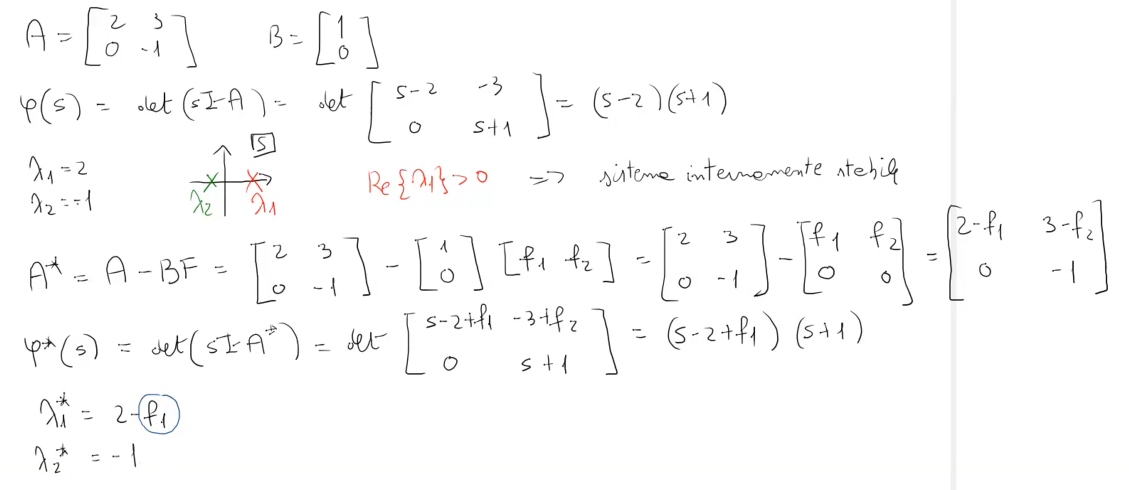 A = [2 3; 0 -1] B = [1; 0]
φ(s) = det(sI-A) = det [s-2 -3; 0 s+1] = (s-2)(s+1)
λ1 = 2
λ2 = -1
S
λ2 λ1
Re{λ1}>0 => sistema internamente stabile
A* = A - BF = [2 3; 0 -1] - [1; 0] [f1 f2] = [2 3; 0 -1] - [f1 f2; 0 0] = [2-f1 3-f2; 0 -1]
φ*(s) = det(sI-A*) = det [s-2+f1 -3+f2; 0 s+1] = (s-2+f1) (s+1)
λ1* = 2-f1
λ2* = -1